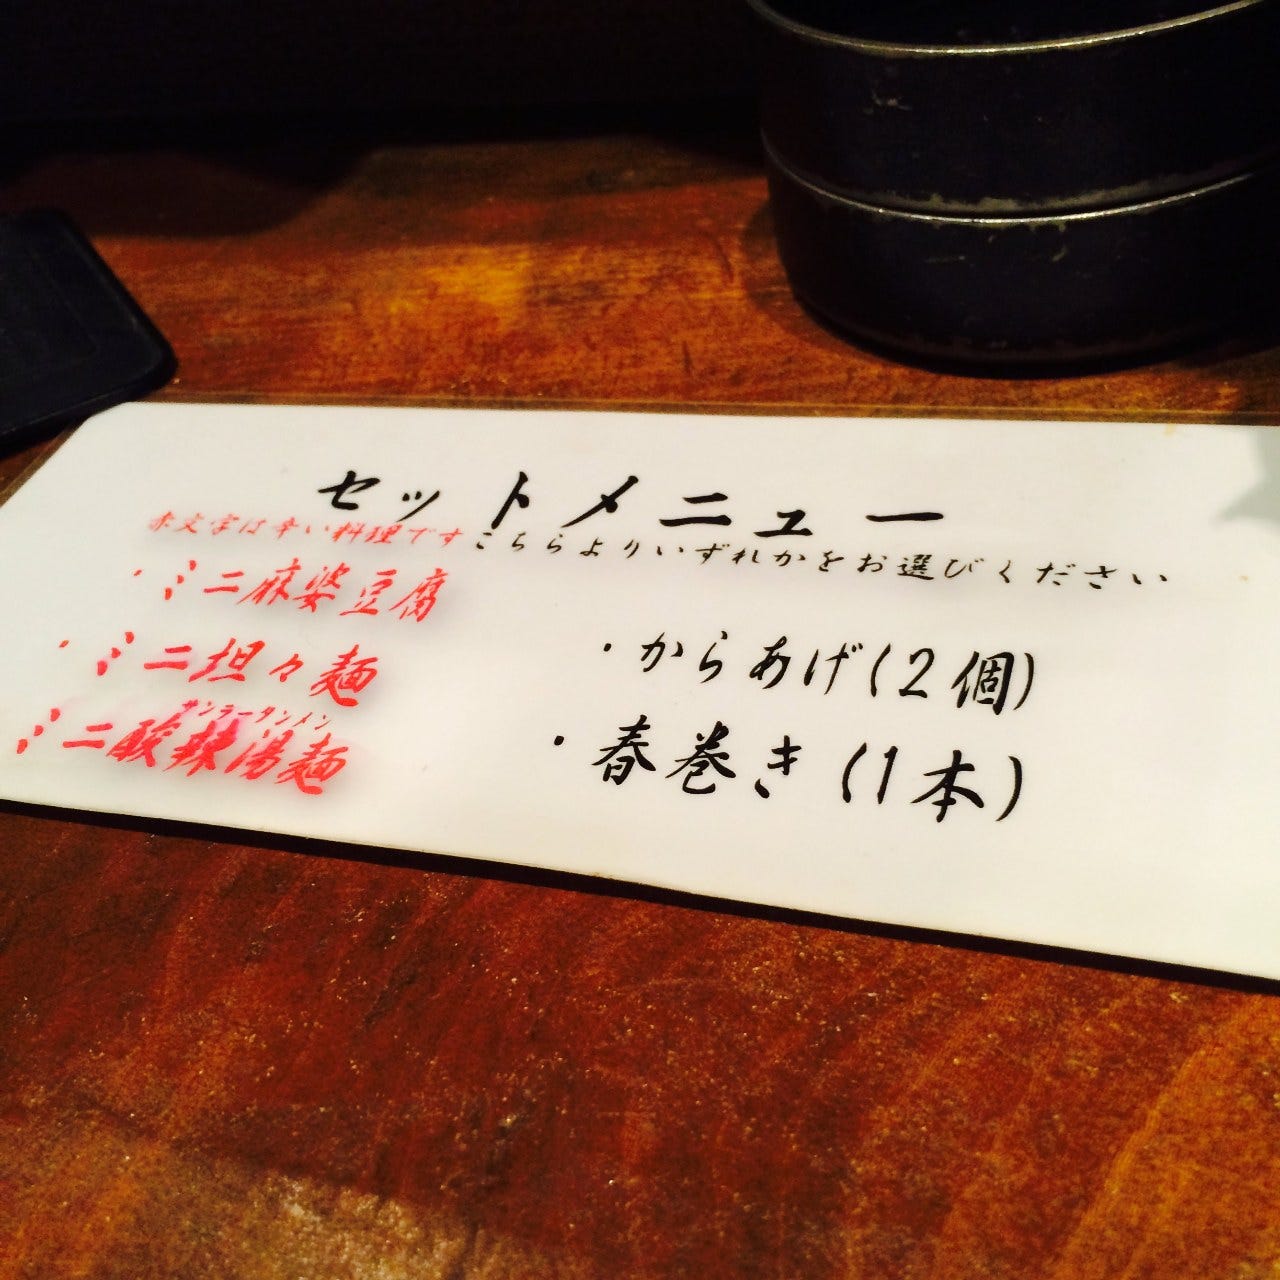 セットメニュー
赤文字は辛い料理です こちらよりいずれかをお選びください
・ミニ麻婆豆腐
・ミニ坦々麺
サンラータンメン
ミニ酸辣湯麺
・からあげ(2個)
・春巻き(1本)